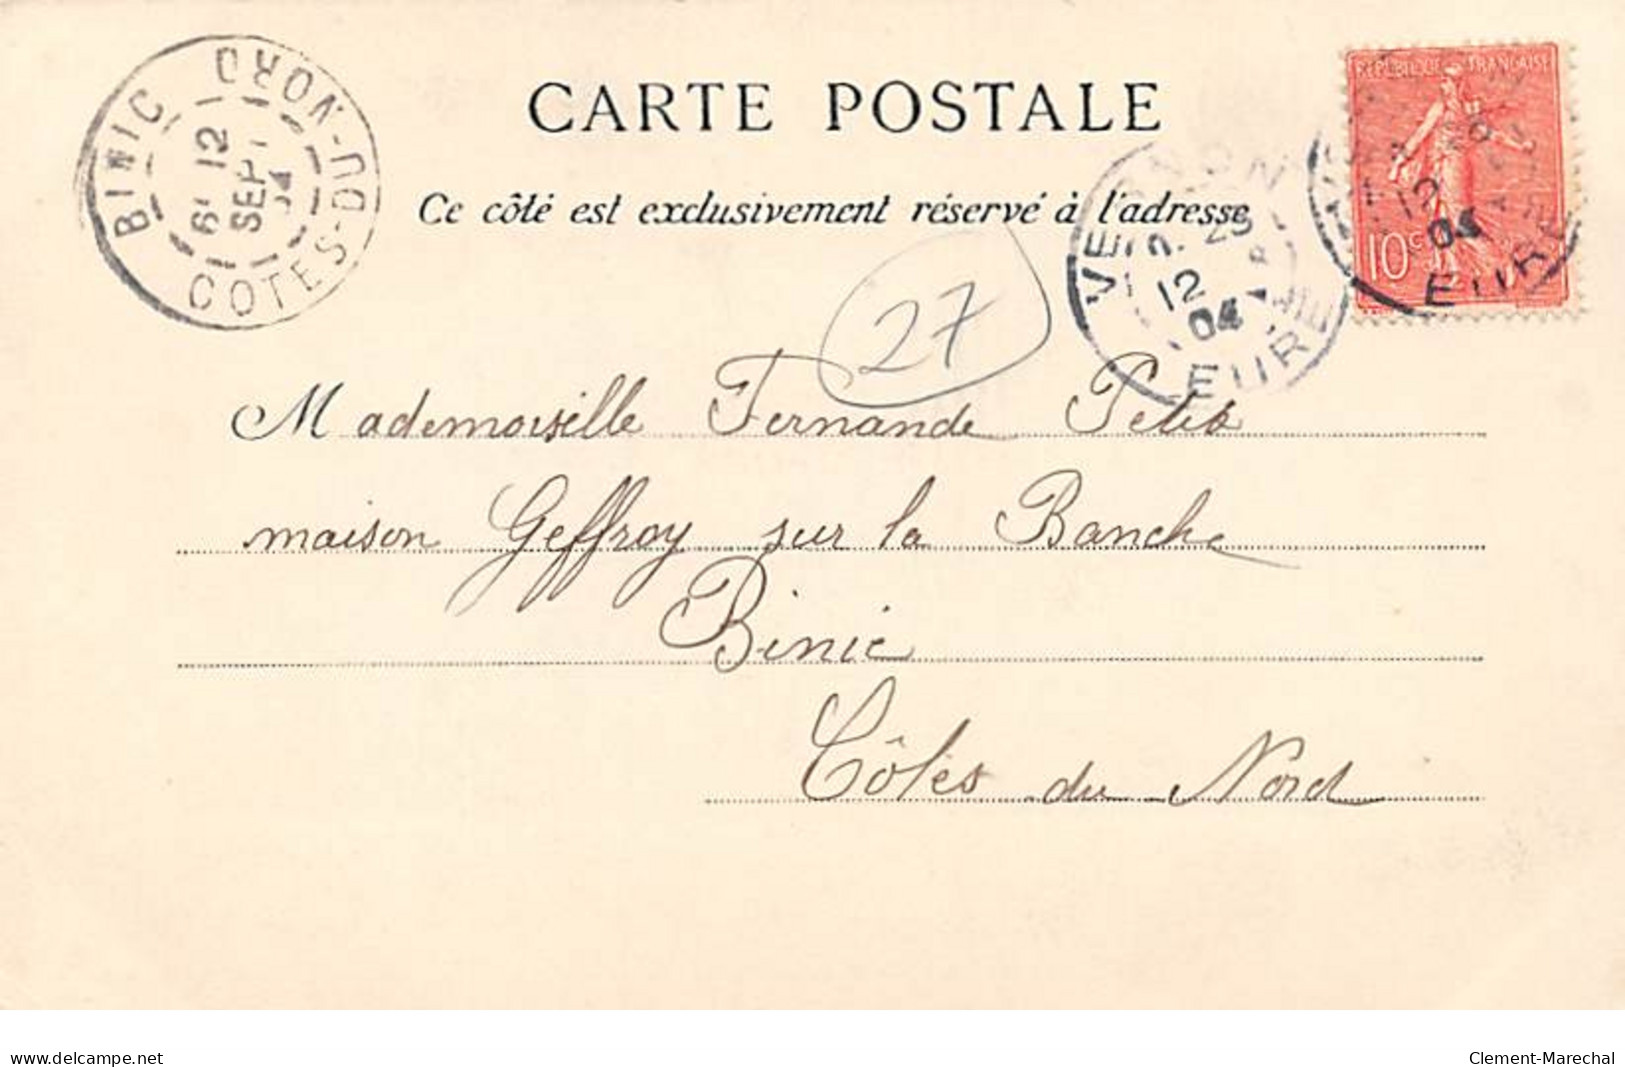 CARTE POSTALE
Ce côté est exclusivement réservé à l'adresse
BINIC
CÔTES-DU-NORD
12
SEPT
04
VERNON
12
04
EURE
RÉPUBLIQUE FRANÇAISE
10c
12
04
EURE
27
Mademoiselle Fernande Petit
maison Geffroy sur la Banche
Binic
Côtes du Nord
www.delcampe.net
Clement-Marechal